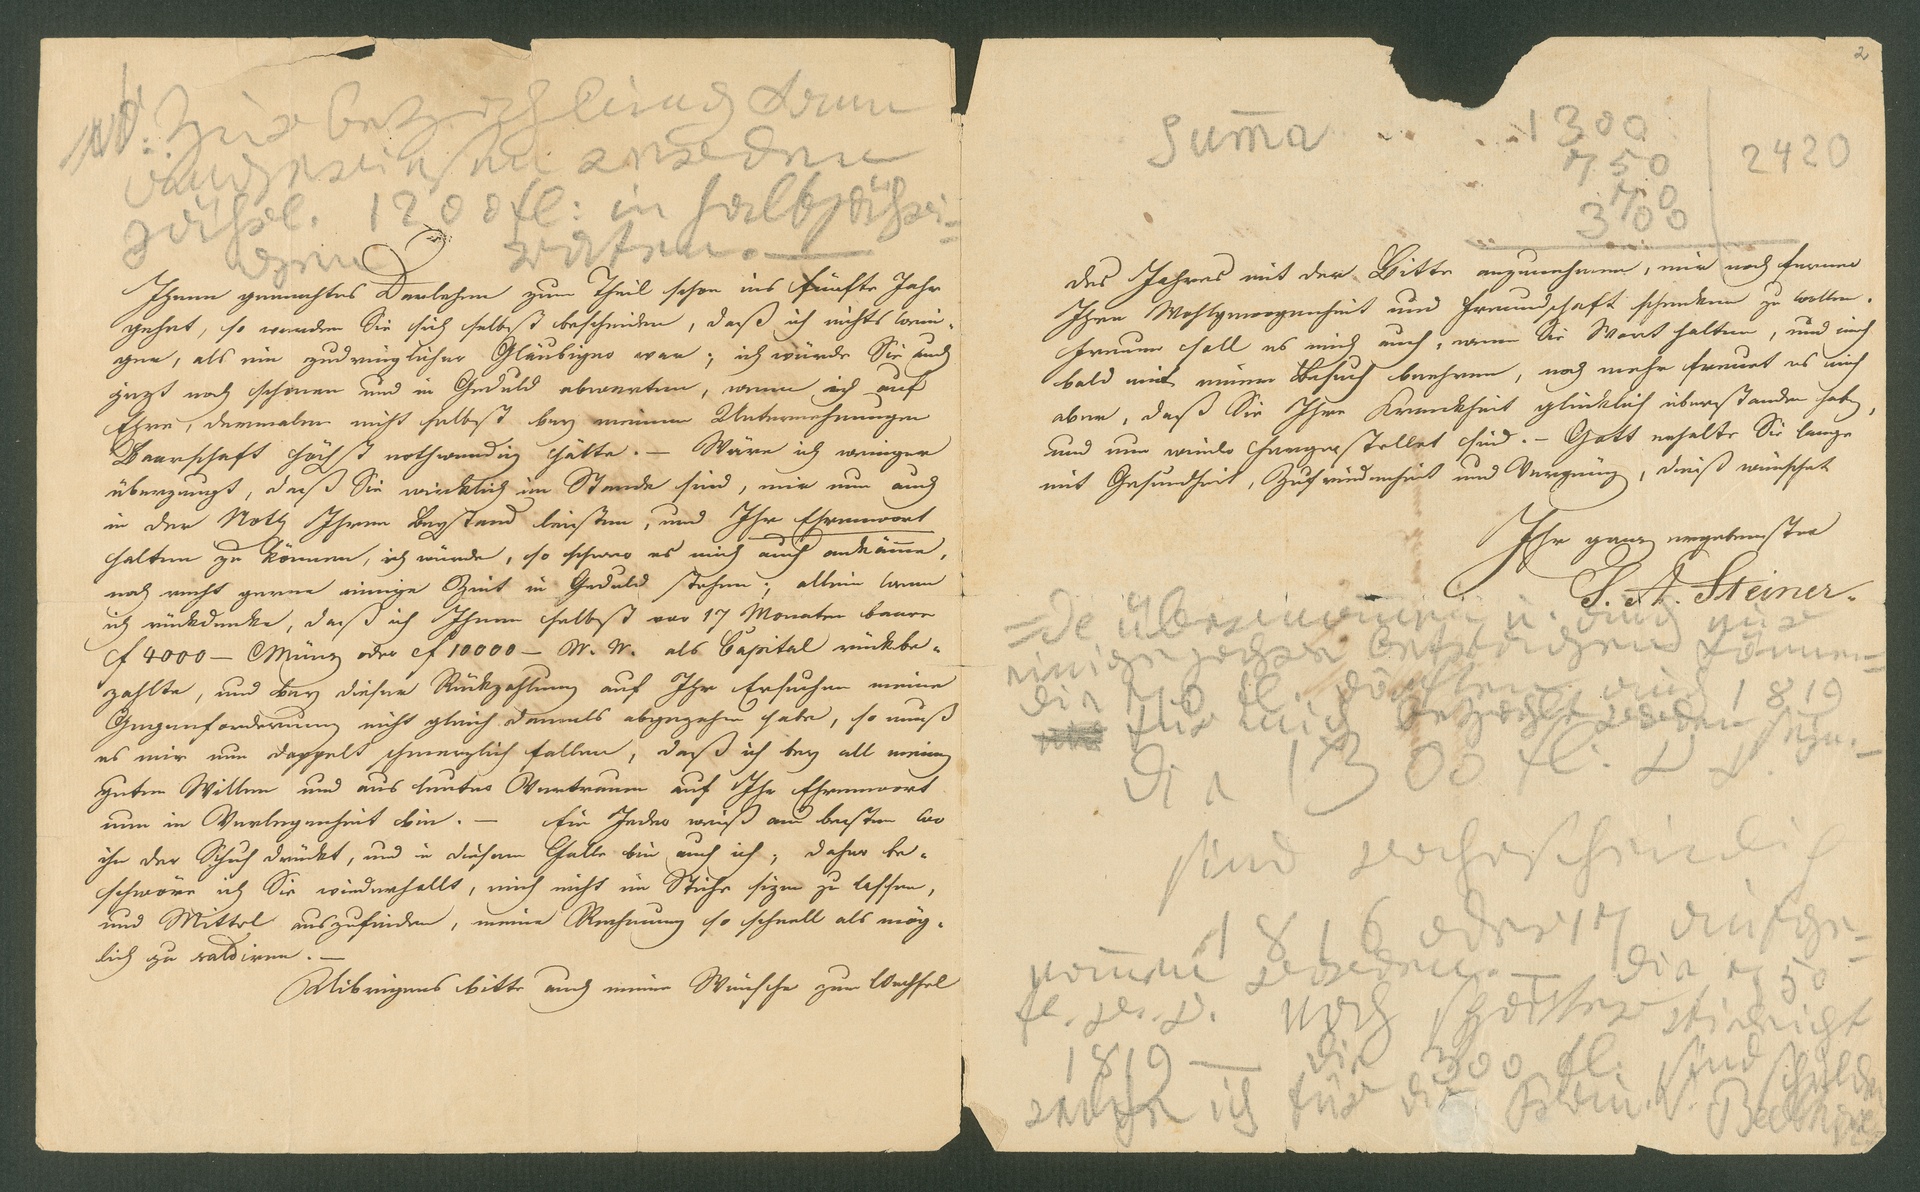 Nb: zur bezahlung kann
angewiesen werden
jährl. 1200 fl: in halbjähri-
gen raten. —
Ihnen gemachtes Darlehen zum Theil schon ins fünfte Jahr
gehet, so werden Sie sich selbst bescheiden, daß ich nichts weni-
ger, als ein zudringlicher Gläubiger war; ich würde Sie auch
jezt noch schonen und in Geduld abwarten, wenn ich auf
Ehre, dermalen nicht selbst bey meinen Unternehmungen
Baarschaft höchst nothwendig hätte. — Wäre ich weniger
überzeugt, daß Sie wirklich im Stande sind, mir nun auch
in der Noth Ihren Beystand leisten, und Ihr Ehrenwort
halten zu können, ich würde, so schwer es mich auch ankäme,
noch recht gerne einige Zeit in Geduld stehen; allein wenn
ich rückdenke, daß ich Ihnen selbst vor 17 Monaten baare
f 4000 — Münz oder f 10000 — W. W. als Capital rückbe-
zahlte, und bey dieser Rückzahlung auf Ihr Ersuchen meine
Gegenforderung nicht gleich damals abgezogen habe, so muß
es mir nun doppelt schmerzlich fallen, daß ich bey all meinem
guten Willen und aus lauter Vertrauen auf Ihr Ehrenwort
nun in Verlegenheit bin. — Ein Jeder weiß am besten wo
ihn der Schuh drückt, und in diesem Falle bin auch ich; daher be-
schwöre ich Sie wiederhollt, mich nicht im Stiche sizen zu lassen,
und Mittel auszufinden, meine Rechnung so schnell als mög-
lich zu saldiren. —
Uibrigens bitte auch meine Wünsche zum Wechsel
2
Suma . . . . 1300
750
2420
70
300
des Jahres mit der Bitte anzunehmen, mir noch ferner
Ihre Wohlgewogenheit und Freundschaft schenken zu wollen.
Freuen soll es mich auch, wenn Sie Wort halten, und mich
bald mit einem Besuch beehren, noch mehr freuet es mich
aber, daß Sie Ihre Krankheit glücklich überstanden haben,
und nun wieder hergestellet sind. — Gott erhalte Sie lange
mit Gesundheit, Zufriedenheit und Vergnügen, dieß wünschet
Ihr ganz ergebenster
S. A. Steiner.
einige jahre betragen können
die 70 fl. dörften auch 1819
für mich bezahlt worden seyn. —
die 1300 fl: W. W.
sind wahrscheinlich
1816 oder 17 aufge-
nommen worden. — die 750
fl. w. w. noch später vieleicht
1819 — die 300 fl. sind schulden
welche ich für die